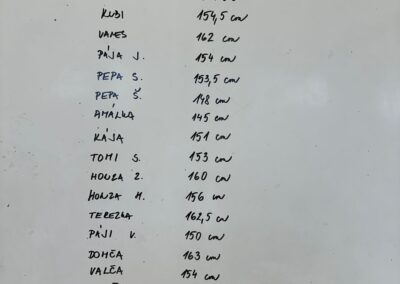 KUBI 154,5 cm
VANES 162 cm
PÁJA J. 154 cm
PEPA S. 153,5 cm
PEPA Š. 148 cm
AMÁLKA 145 cm
KÁJA 151 cm
TOMI S. 153 cm
HONZA Z. 160 cm
HONZA M. 156 cm
TEREZKA 162,5 cm
PÁJI V. 150 cm
DOMČA 163 cm
VALČA 154 cm